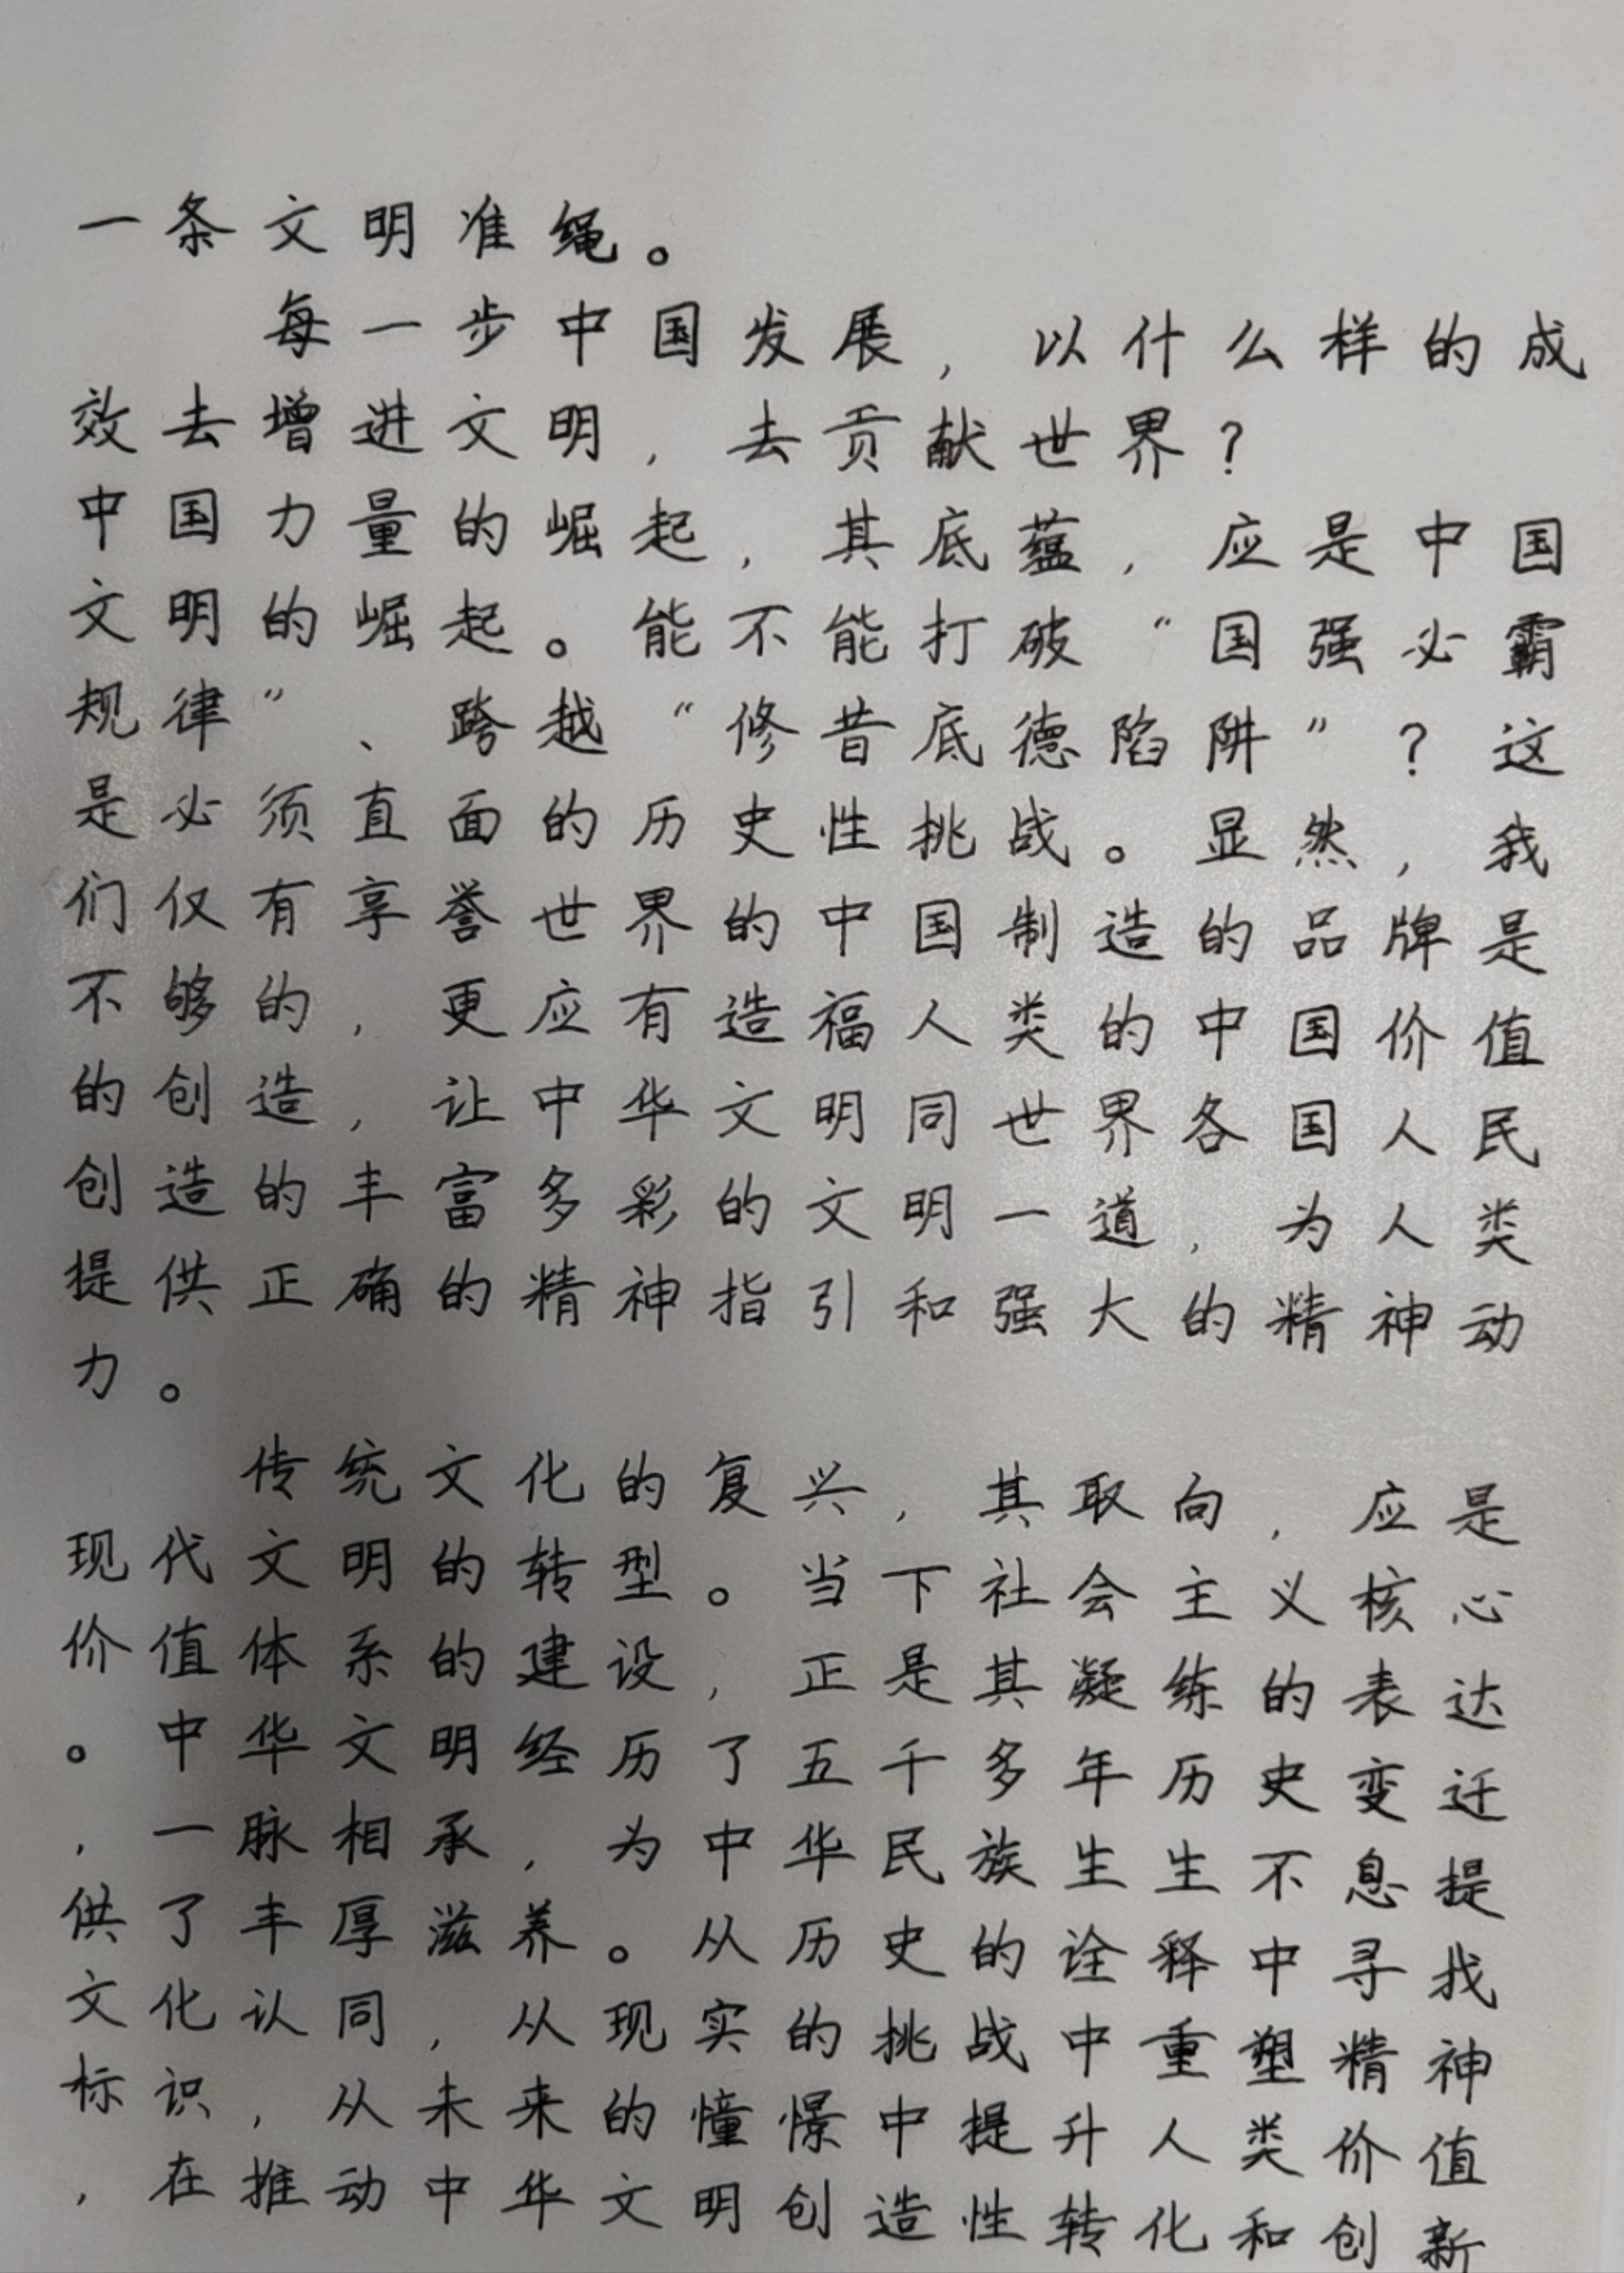 一条文明准绳。
每一步中国发展，以什么样的成
效去增进文明，去贡献世界？
中国力量的崛起，其底蕴，应是中国
文明的崛起。能不能打破“国强必霸
规律”、跨越“修昔底德陷阱”？这
是必须直面的历史性挑战。显然，我
们仅有享誉世界的中国制造的品牌是
不够的，更应有造福人类的中国价值
的创造，让中华文明同世界各国人民
创造的丰富多彩的文明一道，为人类
提供正确的精神指引和强大的精神动
力。
传统文化的复兴，其取向，应是
现代文明的转型。当下社会主义核心
价值体系的建设，正是其凝练的表达
。中华文明经历了五千多年历史变迁
，一脉相承，为中华民族生生不息提
供了丰厚滋养。从历史的诠释中寻找
文化认同，从现实的挑战中重塑精神
标识，从未来的憧憬中提升人类价值
，在推动中华文明创造性转化和创新